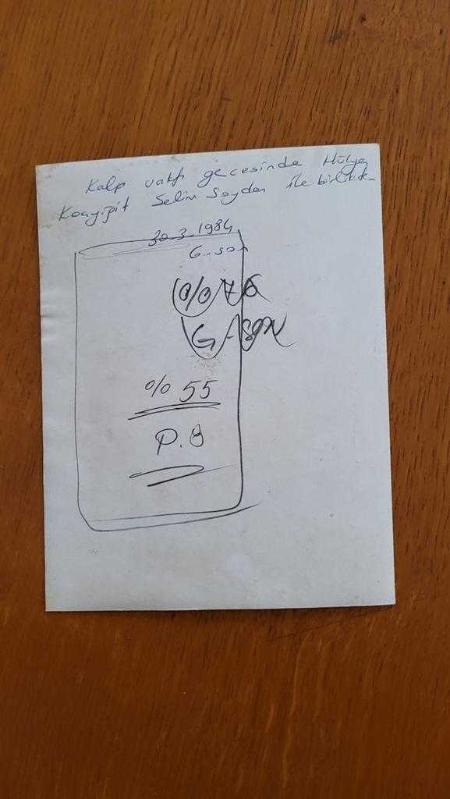 Kalp vakfı gecesinde Hülya
Koçyiğit Selim Soydan ile birlikte
30.3.1984
G-son
%76
G-SON
%55
P.B